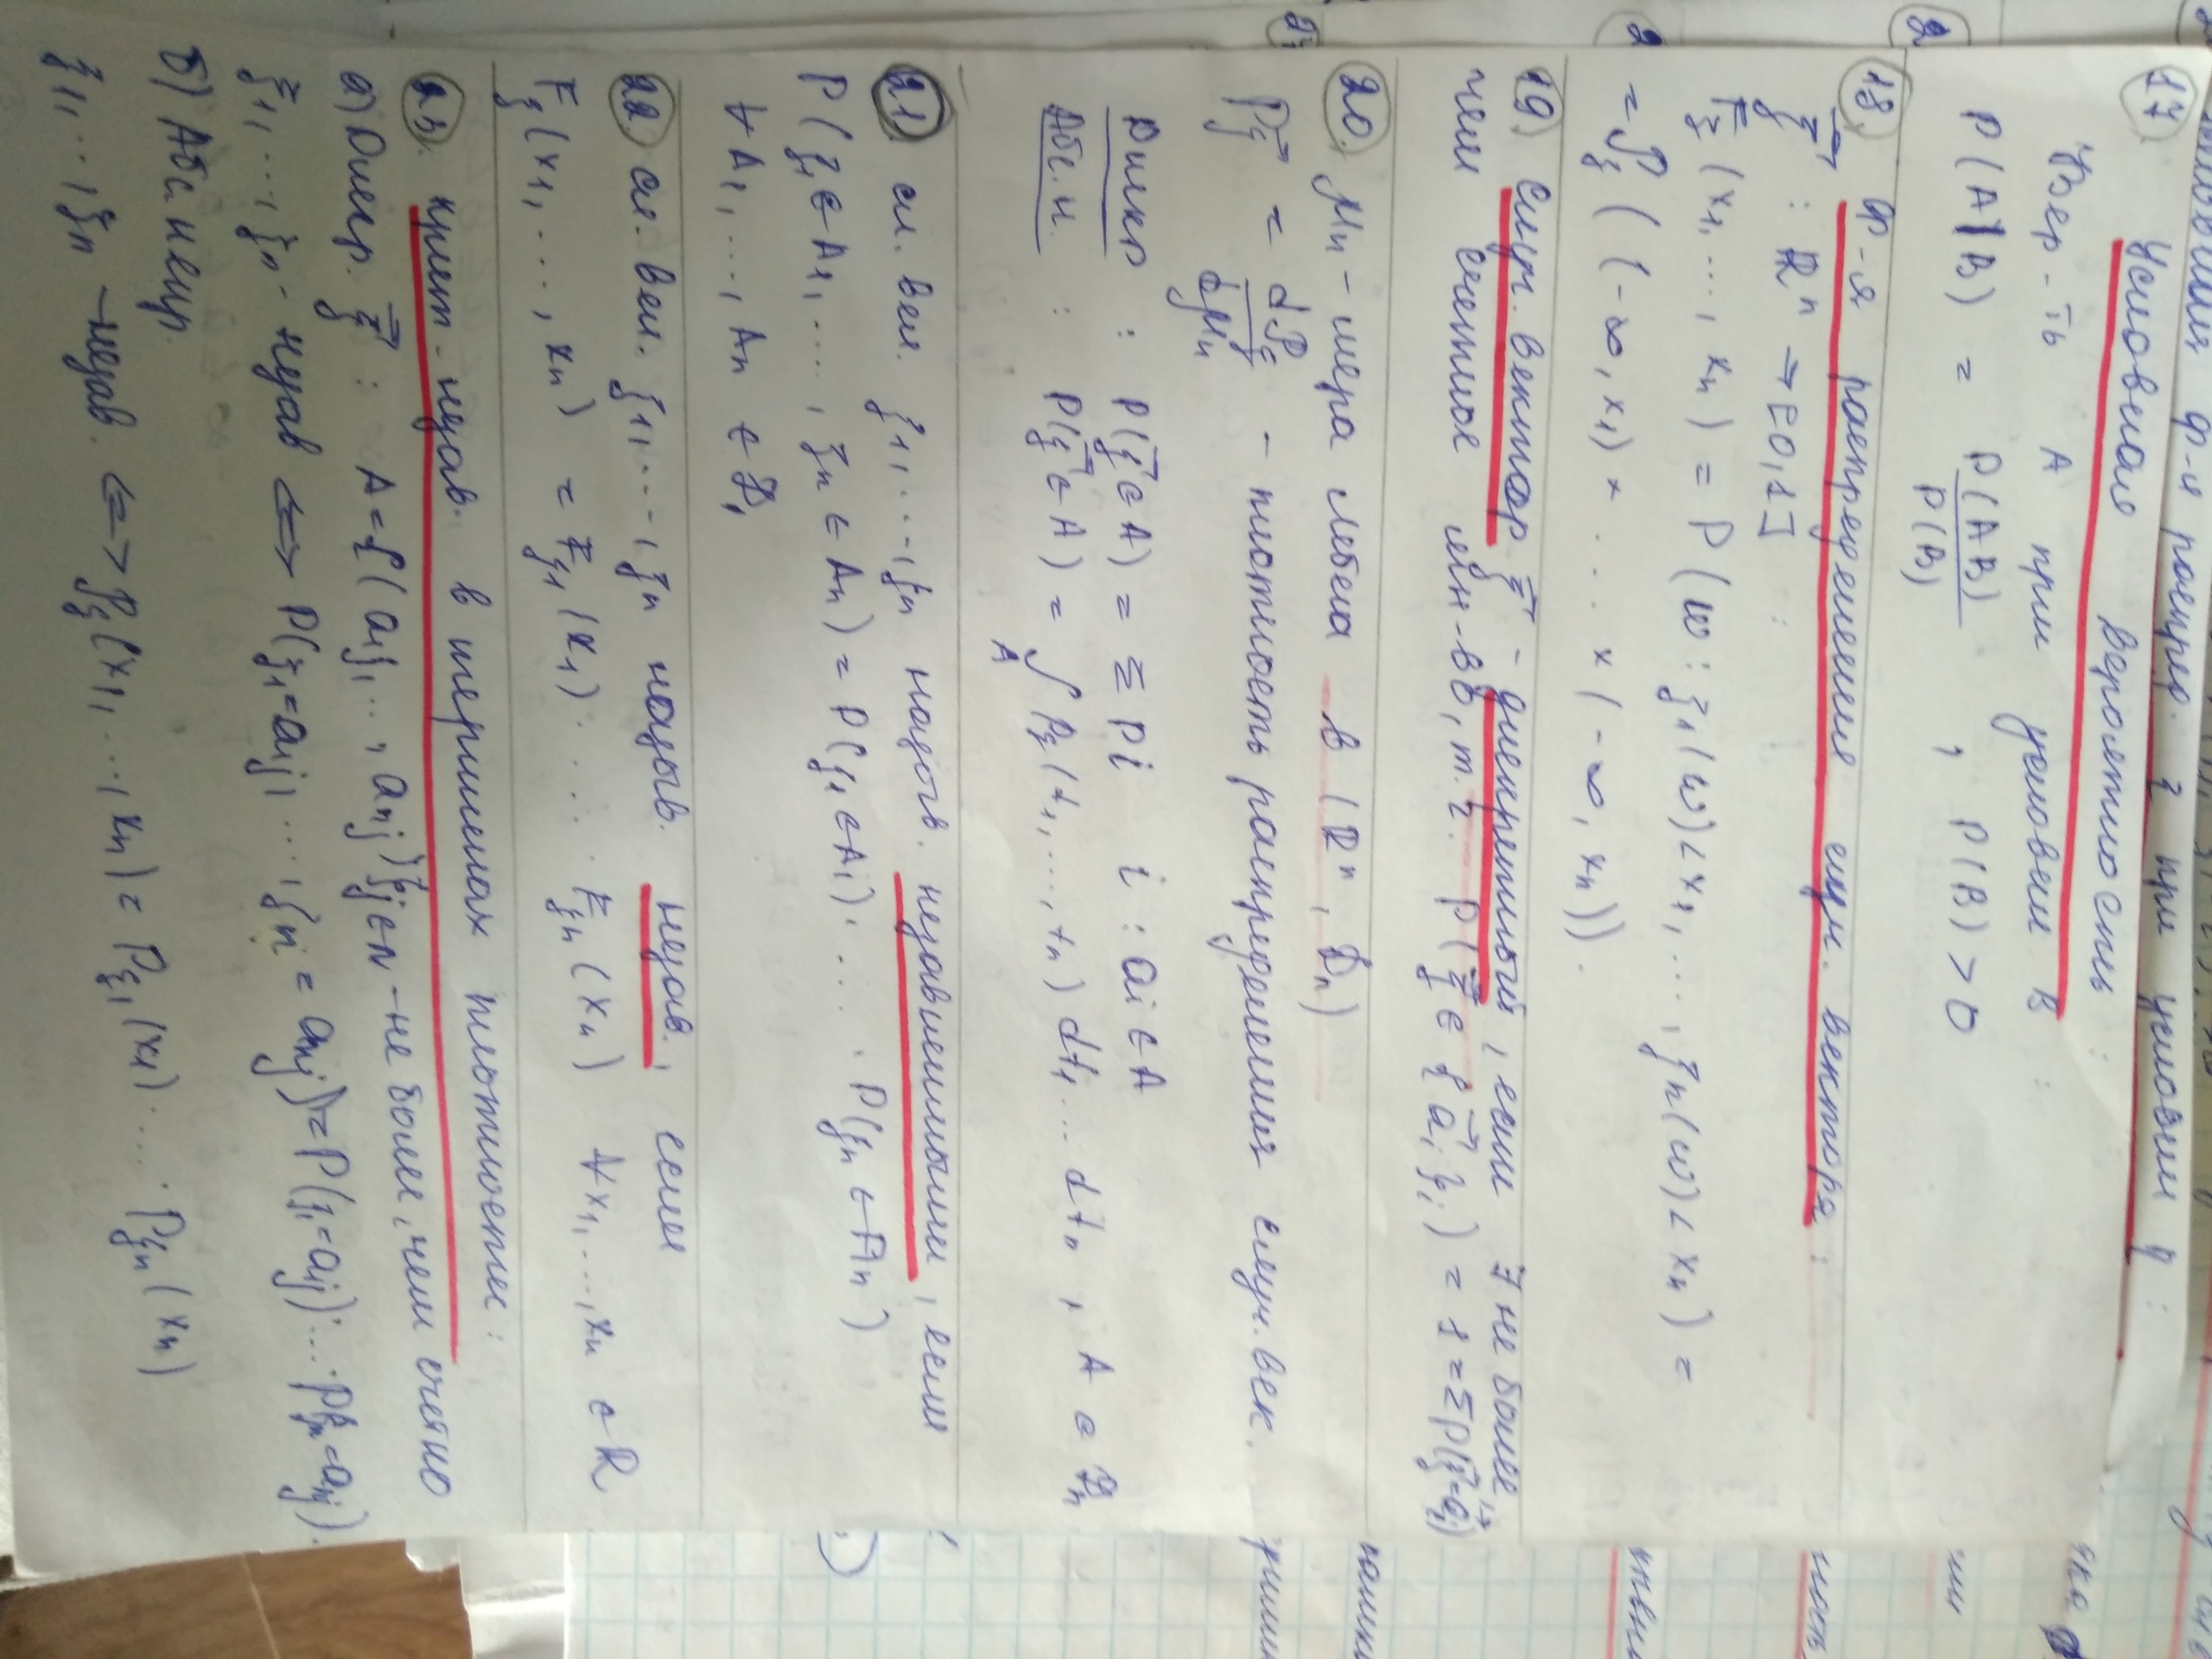 ф-я распред. ξ при условии η :
17 Условная вероятность :
Вер-ть A при условии B :
P(A|B) = P(AB)/P(B) , P(B) > 0
18. Ф-я распределения случ. вектора :
ξ⃗ : ℝⁿ → [0,1] :
F_ξ (x₁, ..., xₙ) = P(ω : ξ₁(ω) < x₁, ..., ξₙ(ω) < xₙ) =
= P_ξ ((-∞, x₁) × .... × (-∞, xₙ)).
19. Случ. вектор ξ⃗ - дискретный, если ∃ не более,
чем счетное мн-во, т.ч. P(ξ⃗ ∈ {a⃗ᵢ}ᵢ) = 1 = Σ P(ξ⃗=a⃗ᵢ)
20. μₙ - мера Лебега в (ℝⁿ, 𝓑ₙ)
P_ξ⃗ = dP_ξ/dμₙ - плотность распределения случ. век.
Дискр : P(ξ⃗ ∈ A) = Σ pi i : ai ∈ A
Абс.н. : P(ξ⃗ ∈ A) = ∫_A p_ξ (t₁, ..., tₙ) dt₁ ... dtₙ , A ∈ 𝓑ₙ
21. сл. вел. ξ₁, ..., ξₙ назыв. независимыми, если
P(ξ₁ ∈ A₁, ...., ξₙ ∈ Aₙ) = P(ξ₁ ∈ A₁) · .... · P(ξₙ ∈ Aₙ)
∀ A₁, ..., Aₙ ∈ 𝓑₁
22. сл. вел. ξ₁, ..., ξₙ назыв. незав., если
F_ξ (x₁, ..., xₙ) = F_ξ₁ (x₁) · .... · F_ξₙ (xₙ) ∀ x₁, ..., xₙ ∈ ℝ
23. крит. незав. в терминах плотности :
а) Дискр. ξ⃗ : A = {(a₁j, ..., aₙj)}j∈N - не более, чем счетно
ξ₁, ..., ξₙ - незав ⟺ P(ξ₁ = a₁j, ..., ξₙ = aₙj) = P(ξ₁ = a₁j) · ... · P(ξₙ = aₙj).
б) Абс. непр.
ξ₁, ..., ξₙ - незав. ⟺ p_ξ (x₁, ..., xₙ) = p_ξ₁ (x₁) · .... · p_ξₙ (xₙ)